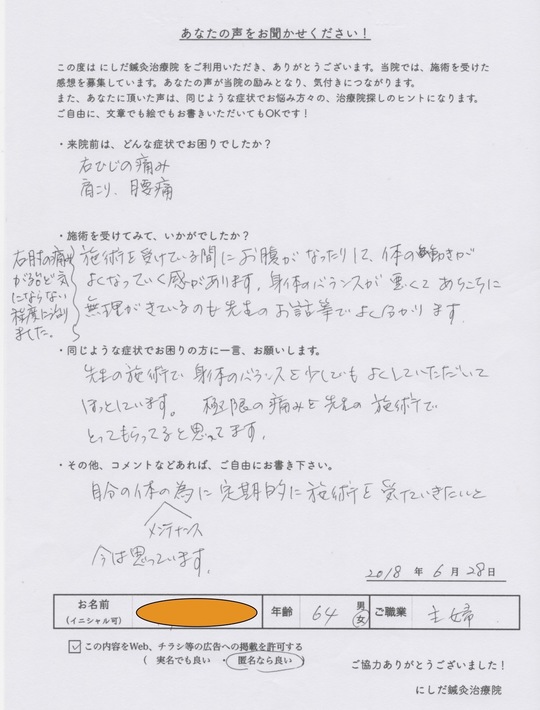 あなたの声をお聞かせください！
この度は にしだ鍼灸治療院 をご利用いただき、ありがとうございます。当院では、施術を受けた
感想を募集しています。あなたの声が当院の励みとなり、気付きにつながります。
また、あなたに頂いた声は、同じような症状でお悩み方々の、治療院探しのヒントになります。
ご自由に、文章でも絵でもお書きいただいてもOKです！
・来院前は、どんな症状でお困りでしたか？
右ひじの痛み
肩こり、腰痛
・施術を受けてみて、いかがでしたか？
右肘の痛み
が殆ど気
にならない
程度に治り
ました。
施術を受けている間にお腹がなったりして、体の動きが
よくなっていく感があります。身体のバランスが悪くてあちこちに
無理がきているのも先生のお話等でよく分かります
・同じような症状でお困りの方に一言、お願いします。
先生の施術で身体のバランスを少しでもよくしていただいて
ほっとしています。 極限の痛みを先生の施術で
とってもらってると思ってます。
・その他、コメントなどあれば、ご自由にお書き下さい。
自分の体の為に定期的に施術を受けていきたいと
メンテナンス
今は思っています。
2018 年 6 月 28 日
お名前
(イニシャル可)
年齢 64 男 女 ご職業 主婦
この内容をWeb、チラシ等の広告への掲載を許可する
( 実名でも良い ・ 匿名なら良い )
ご協力ありがとうございました！
にしだ鍼灸治療院